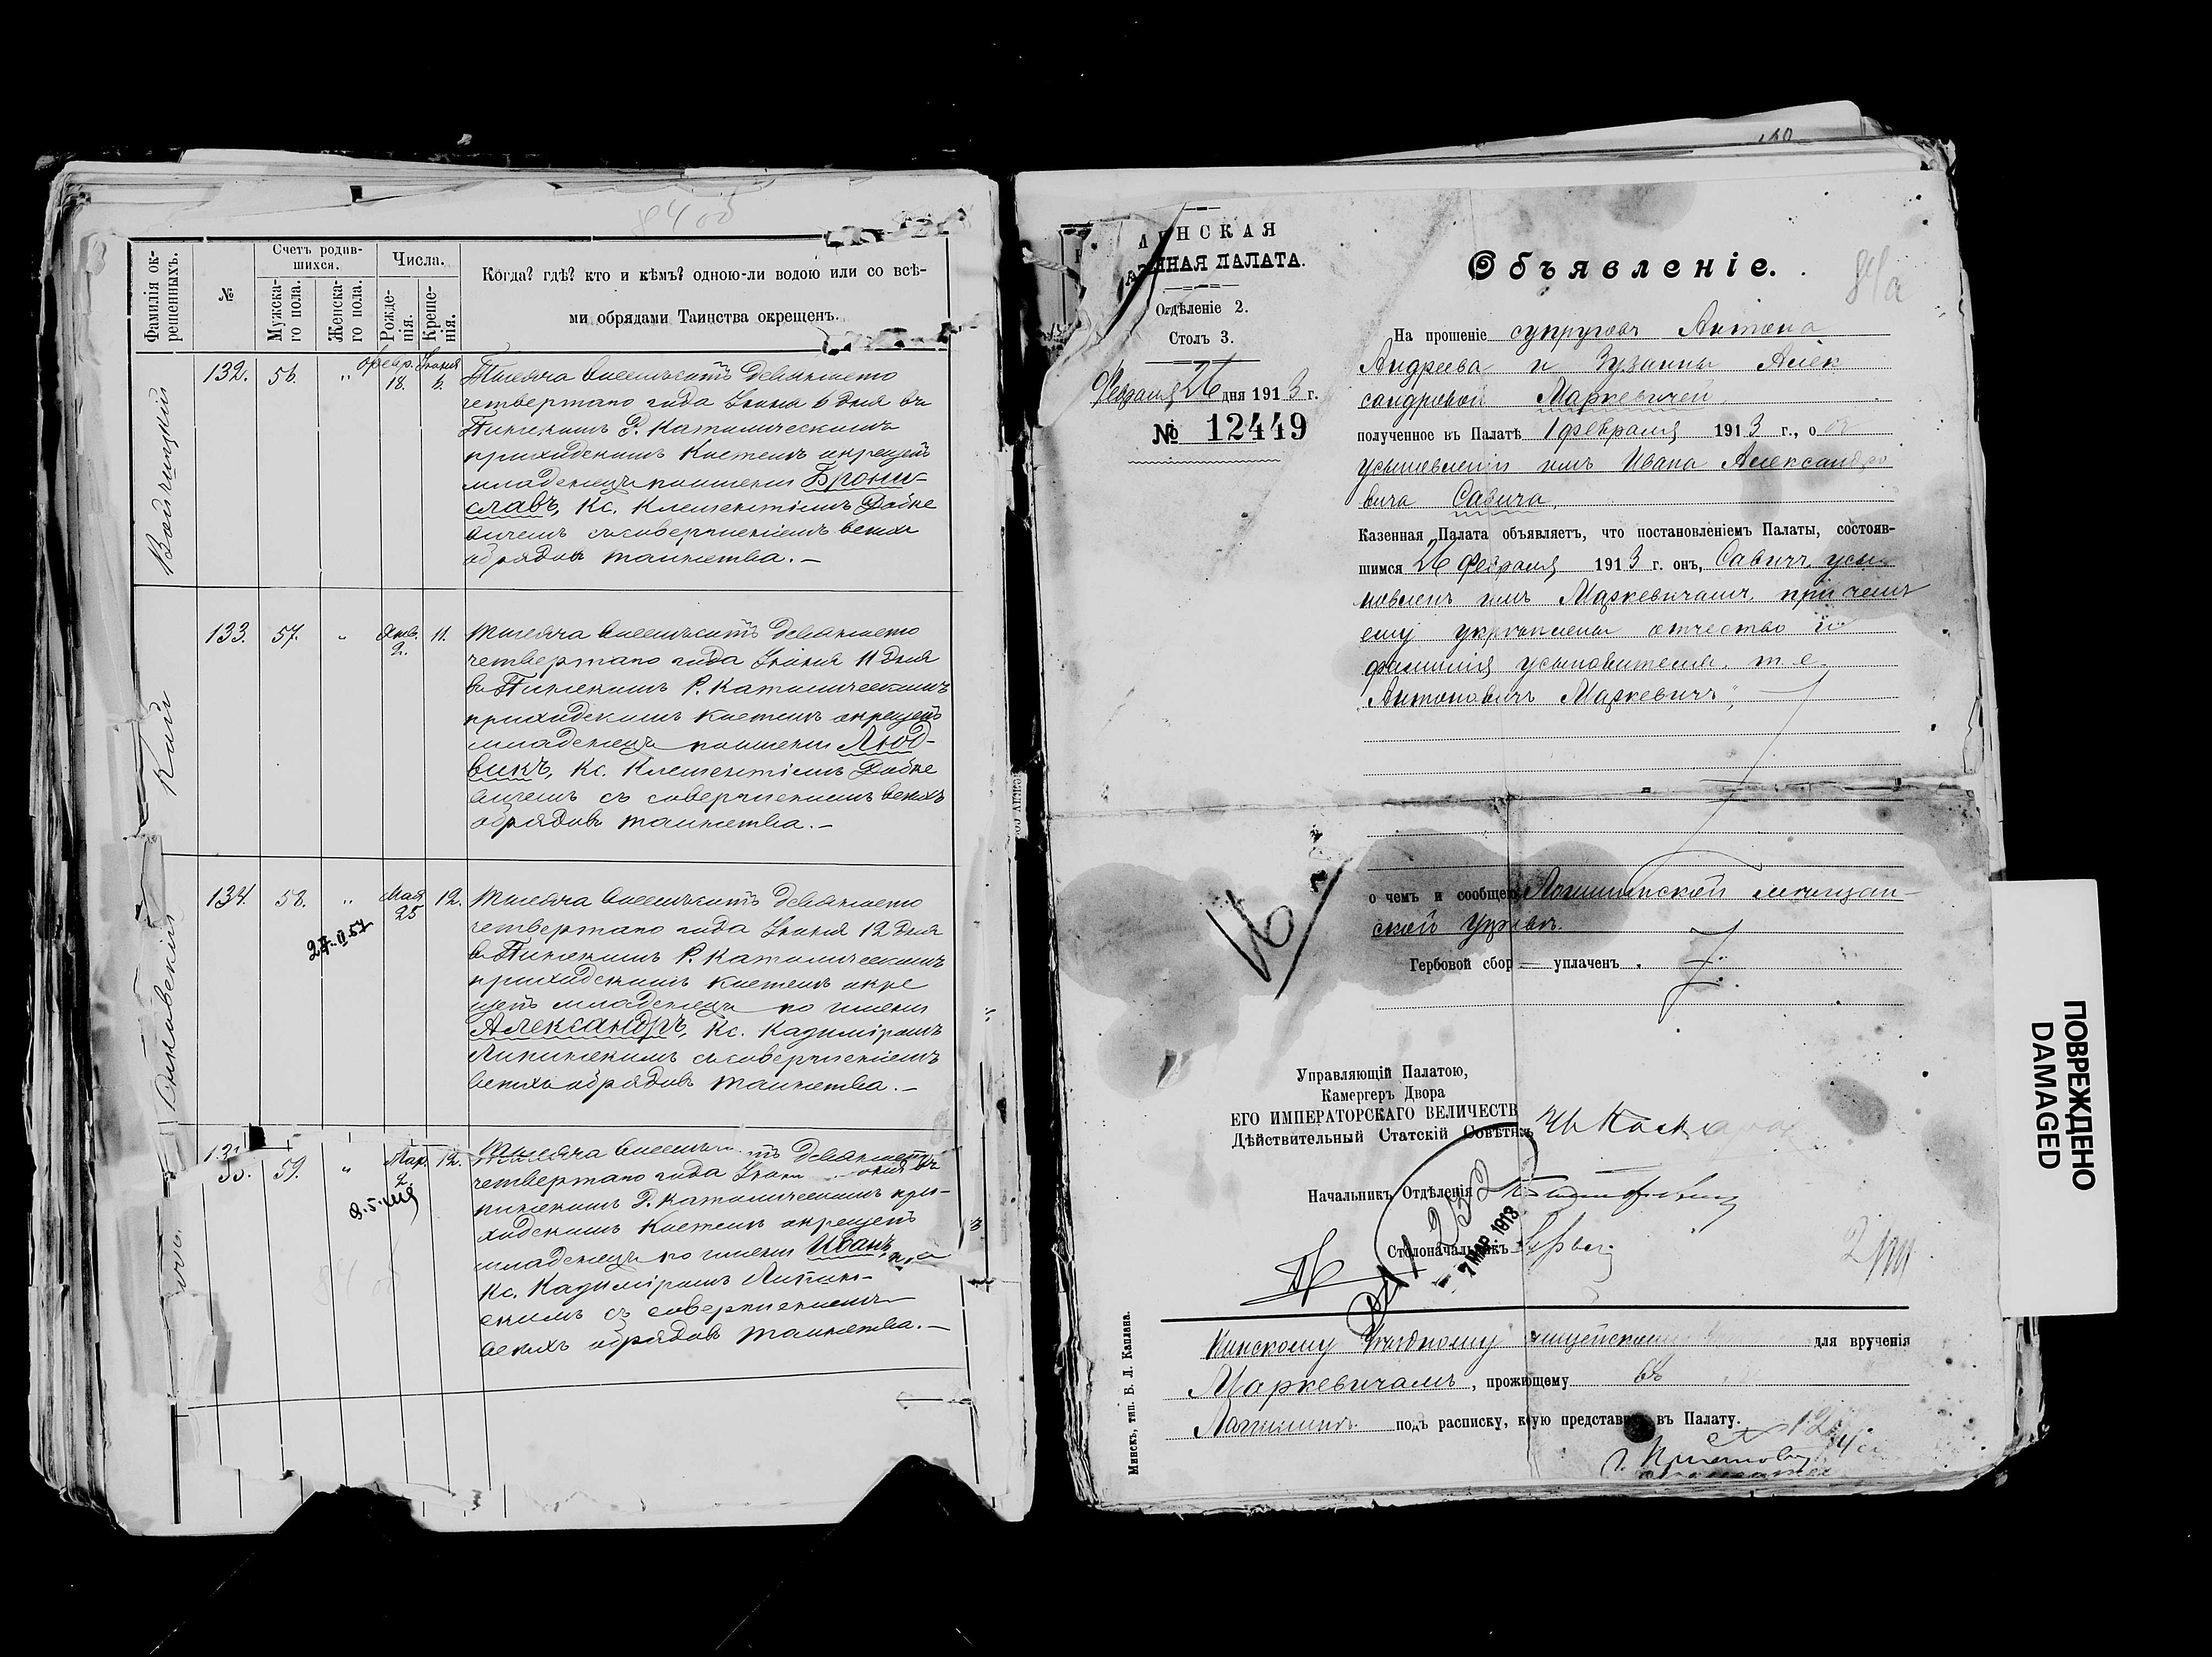 84 об
Фамилія ок-
решенныхъ.
№
Счетъ родив-
шихся.
Мужска-
го пола.
Женска-
го пола.
Числа.
Рожде-
нія.
Креще-
нія.
Когда? гдѣ? кто и кѣмъ? одною-ли водою или со всѣ-
ми обрядами Таинства окрещенъ.
132. 56. " Февр. 18. Іюня 6.
Тысяча восемьсотъ девяносто
четвертаго года Іюня 6 дня въ
Пинскомъ Р. Католическомъ
приходскомъ костелѣ окрещенъ
младенецъ по имени Брони-
славъ, Кс. Клементіемъ
съ совершеніемъ всѣхъ
обрядовъ таинства. —
Кой
133. 57. " Янв. 2. 11.
Тысяча восемьсотъ девяносто
четвертаго года Іюня 11 дня
въ Пинскомъ Р. Католическомъ
приходскомъ костелѣ окрещенъ
младенецъ по имени Люд-
викъ, Кс. Клементіемъ
съ совершеніемъ всѣхъ
обрядовъ таинства. —
134. 58. " Мая 25 12.
27.II.57
Тысяча восемьсотъ девяносто
четвертаго года Іюня 12 дня
въ Пинскомъ Р. Католическомъ
приходскомъ костелѣ окре
щенъ младенецъ по имени
Александръ, Кс. Казиміромъ
Липинскимъ съ совершеніемъ
всѣхъ обрядовъ таинства. —
59. " Мар. 2. 12.
Тысяча девяносто
четвертаго года
Пинскомъ Р. Католическомъ при-
ходскомъ костелѣ окрещенъ
младенецъ по имени Иванъ,
Кс. Казиміромъ Липин-
скимъ съ совершеніемъ
всѣхъ обрядовъ таинства. —
НСКАЯ
ННАЯ ПАЛАТА.
Отдѣленіе 2.
Столъ 3.
Февраля 26 дня 1913 г.
№ 12449
Объявленіе.
84а
На прошеніе супруговъ Антона
Андреева и Зузанны Алек
сандровой Маркевичей
полученное въ Палатѣ 1 февраля 1913 г., о
усыновленіи имъ Ивана Александро
вича Савича,
Казенная Палата объявляетъ, что постановленіемъ Палаты, состояв-
шимся 26 Февраля 1913 г. онъ, Савичъ, усы-
новленъ имъ Маркевичамъ, при чемъ
ему укрѣплены отчество и
фамилія усыновителя, т. е.
"Антоновичъ Маркевичъ";
о чемъ и сообщено Логишинской мѣщан-
ской Управѣ.
Гербовой сбор — уплаченъ.
Управляющій Палатою,
Камергеръ Двора
ЕГО ИМПЕРАТОРСКАГО ВЕЛИЧЕСТВ
Дѣйствительный Статскій Совѣтникъ
Начальникъ Отдѣленія
Столоначальникъ
7 МАР. 1913
Пинскому Уѣздному для врученія
Маркевичамъ, прожющему въ
Логишинѣ подъ расписку, кою представить въ Палату.
Минскъ, тип. Б. Л. Каплана.
ПОВРЕЖДЕНО
DAMAGED